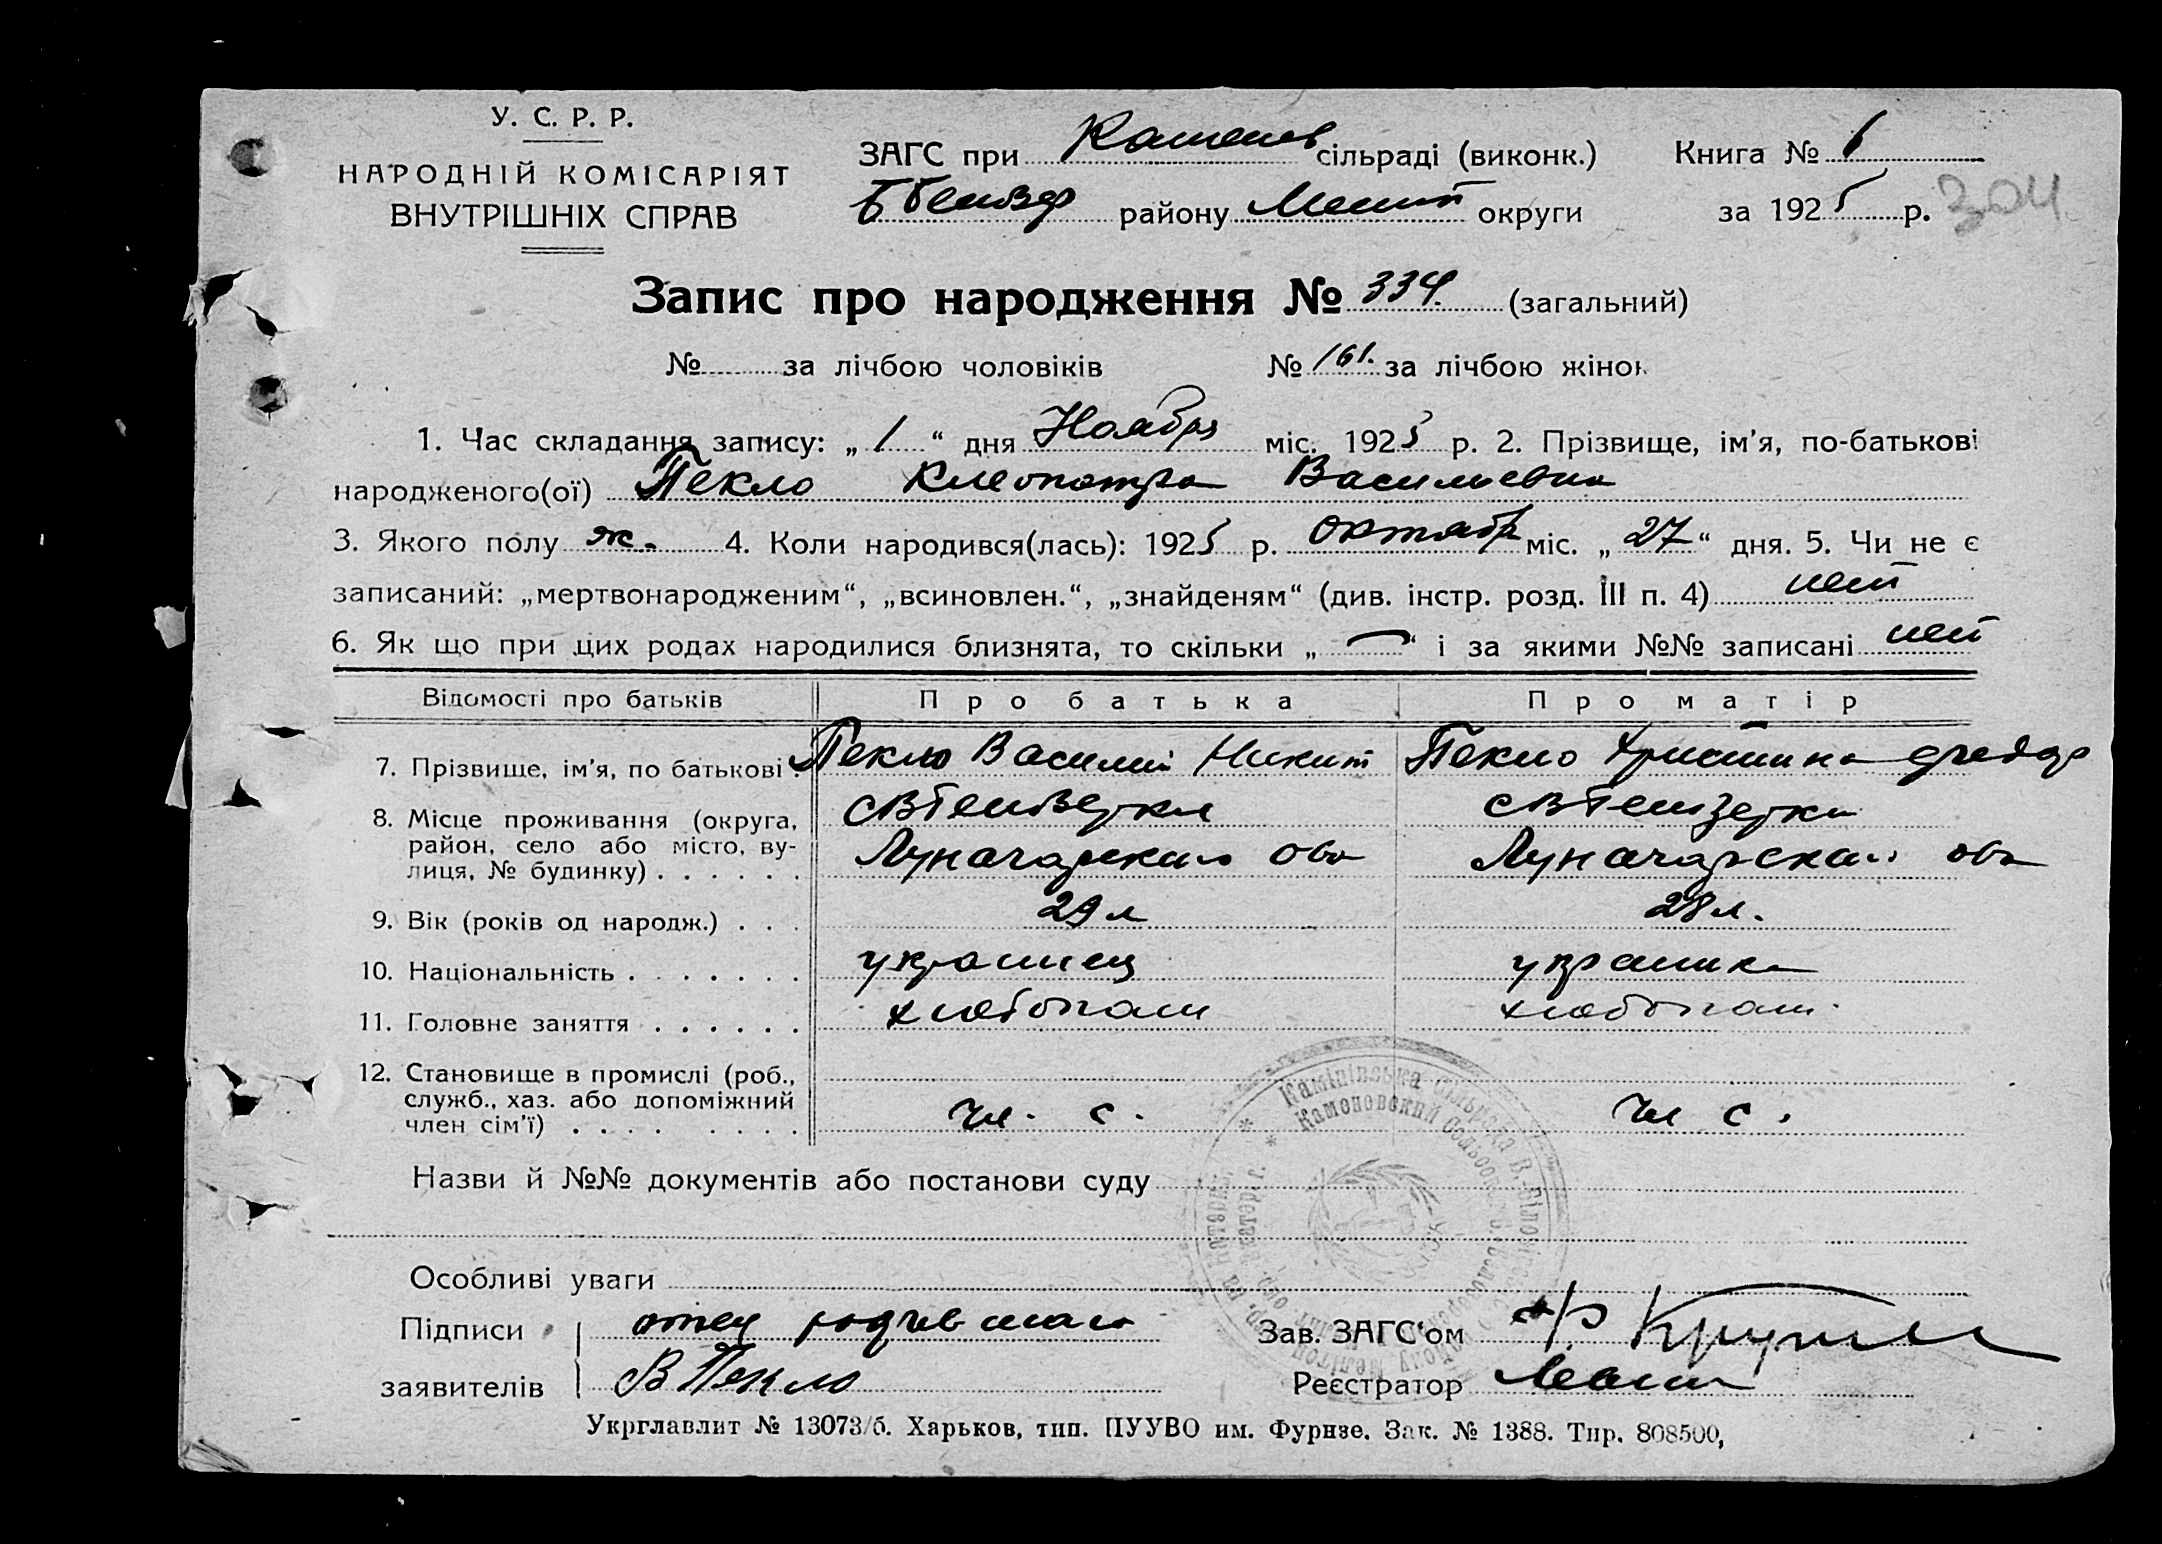 У. С. Р. Р.
НАРОДНІЙ КОМІСАРІЯТ
ВНУТРІШНІХ СПРАВ
ЗАГС при сільраді (виконк.)
району Мелит округи
Книга №
за 1925 р. 304
Запис про народження № 334. (загальний)
№ за лічбою чоловіків № 161. за лічбою жінок
1. Час складання запису: „ 1 “ дня Ноября міс. 1925 р. 2. Прізвище, ім'я, по-батькові
народженого(ої) Пекло Клеопатра Васильевна
3. Якого полу ж. 4. Коли народився(лась): 1925 р. октябр міс. „ 27 “ дня. 5. Чи не є
записаний: „мертвонародженим“, „всиновлен.“, „знайденям“ (див. інстр. розд. III п. 4) нет
6. Як що при цих родах народилися близнята, то скільки „ — “ і за якими №№ записані нет
Відомості про батьків Про батька Про матір
7. Прізвище, ім'я, по батькові . Пекло Василий Никит Пекло Христина
8. Місце проживання (округа,
район, село або місто, ву-
лиця, № будинку) . . . . . .
9. Вік (років од народж.) . . . 29 л 28 л.
10. Національність . . . . . . . украинец украинка
11. Головне заняття . . . . . . хлебопаш хлебопаш.
12. Становище в промислі (роб.,
служб., хаз. або допоміжний
член сім'ї) . . . . . . . . чл. с. чл с.
Назви й №№ документів або постанови суду
Особливі уваги
Підписи отец
заявителів В Пекло
Зав. ЗАГС'ом
Реєстратор
Укрглавлит № 13073/б. Харьков, тип. ПУУВО им. Фурнзе. Зак. № 1388. Тир. 808500,